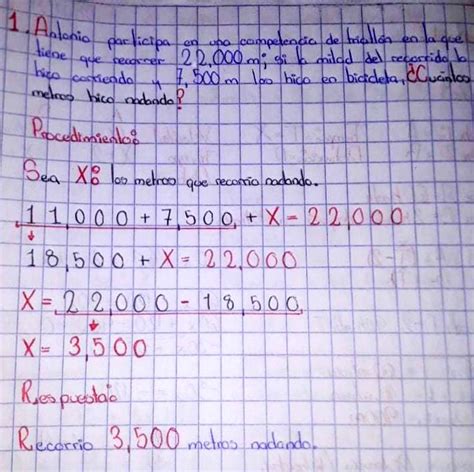 1. Antonio participa en una competencia de triatlón en la que
tiene que recorrer 22,000 m; si la mitad del recorrido lo
hizo corriendo y 7,500 m los hizo en bicicleta, ¿Cuántos
metros hizo nadando?
Procedimiento:
Sea X: los metros que recorrio nadando.
11,000 + 7,500 + X = 22,000
18,500 + X = 22,000
X = 22,000 - 18,500
X = 3,500
Respuesta:
Recorrio 3,500 metros nadando.